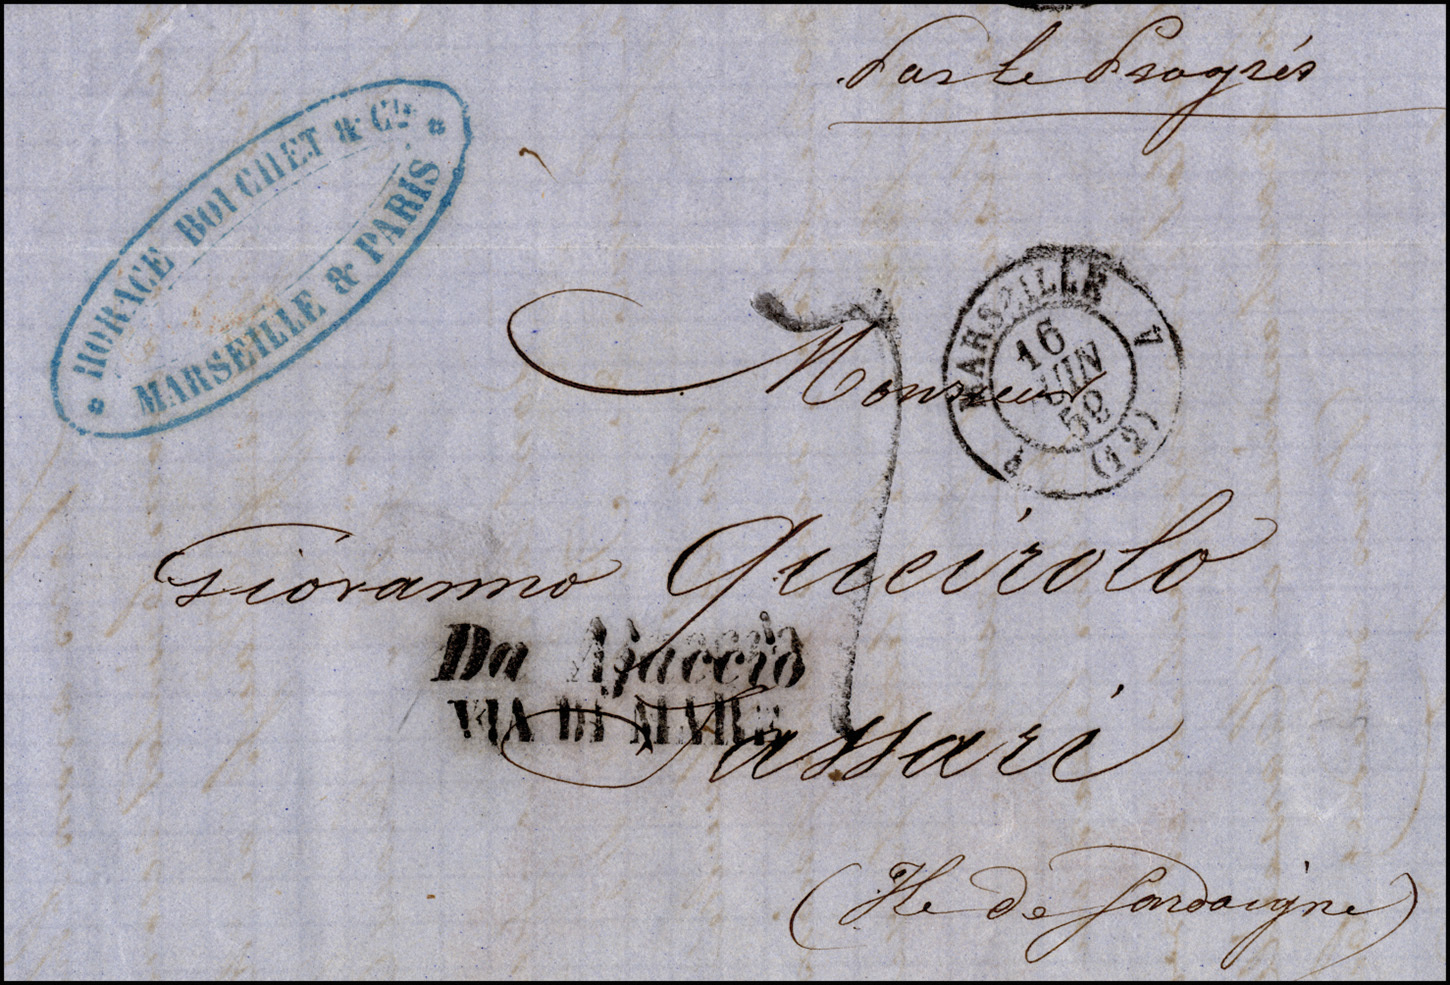 Par le Progrés
HORACE BOUCHET & Cie
MARSEILLE & PARIS
MARSEILLE A
16
JUIN
59
(12)
7
Monsieur
Giovanno Queirolo
Da Ajaccio
VIA DI MARE
Sassari
(Ile de Sardaigne)